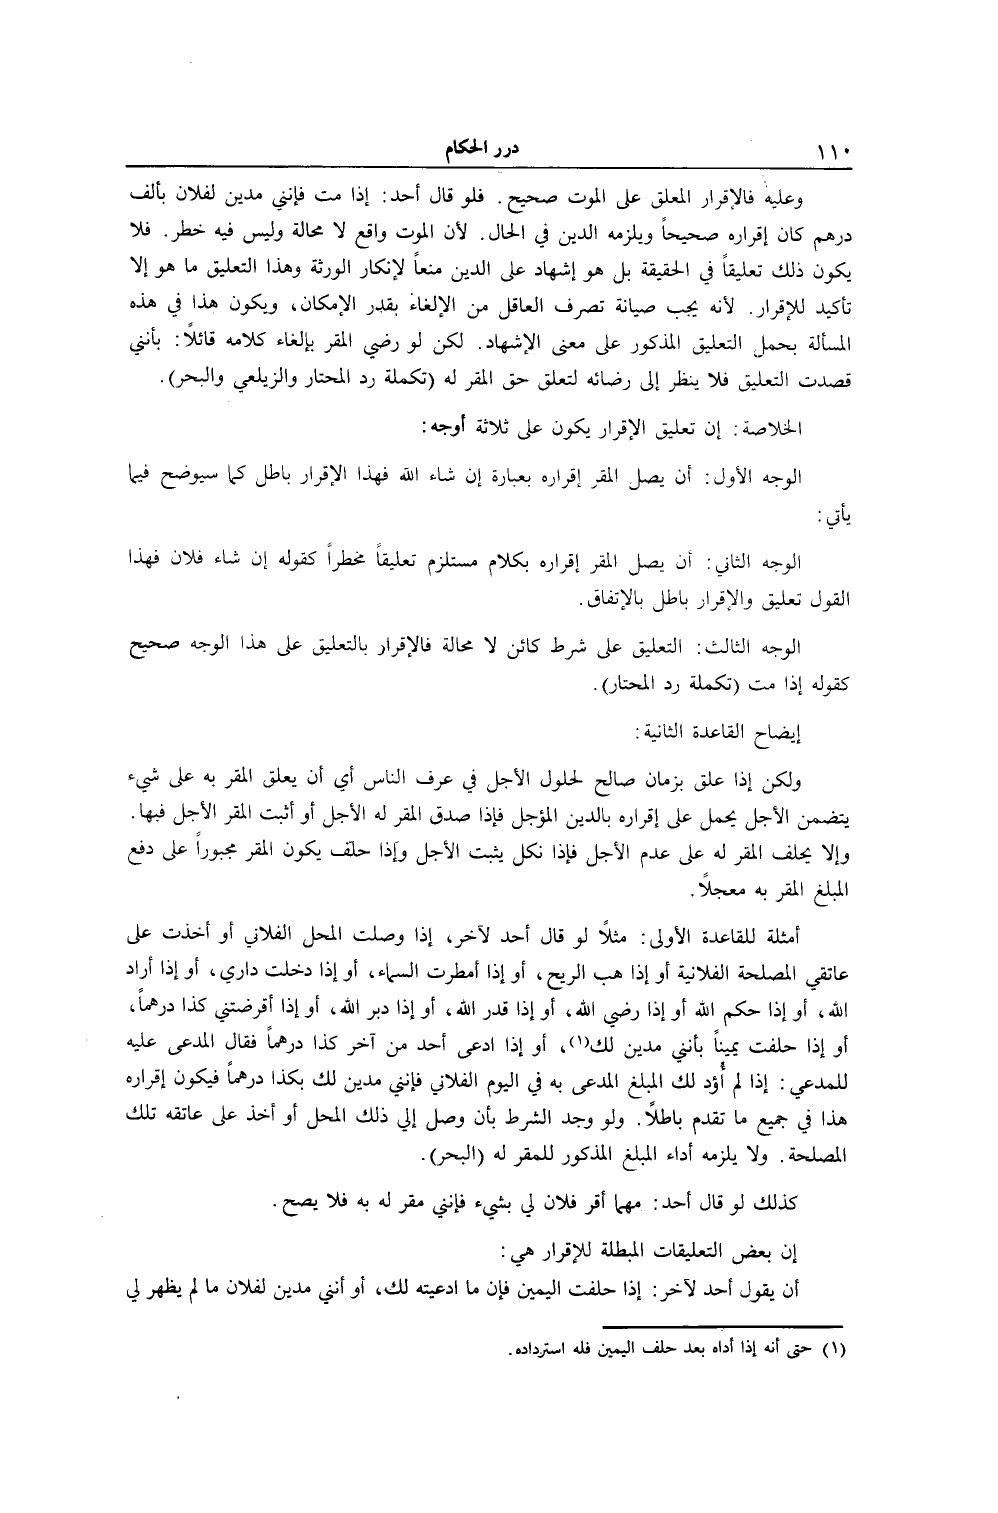 ١١٠
درر الحكام
وعليه فالإقرار المعلق على الموت صحيح. فلو قال أحد: إذا مت فإنني مدين لفلان بألف
درهم كان إقراره صحيحاً ويلزمه الدين في الحال. لأن الموت واقع لا محالة وليس فيه خطر. فلا
يكون ذلك تعليقاً في الحقيقة بل هو إشهاد على الدين منعاً لإنكار الورثة وهذا التعليق ما هو إلا
تأكيد للإقرار. لأنه يجب صيانة تصرف العاقل من الإلغاء بقدر الإمكان، ويكون هذا في هذه
المسألة بحمل التعليق المذكور على معنى الإشهاد. لكن لو رضي المقر بإلغاء كلامه قائلاً: بأنني
قصدت التعليق فلا ينظر إلى رضائه لتعلق حق المقر له (تكملة رد المحتار والزيلعي والبحر).
الخلاصة: إن تعليق الإقرار يكون على ثلاثة أوجه:
الوجه الأول: أن يصل المقر إقراره بعبارة إن شاء الله فهذا الإقرار باطل كما سيوضح فيما
يأتي:
الوجه الثاني: أن يصل المقر إقراره بكلام مستلزم تعليقاً مخطراً كقوله إن شاء فلان فهذا
القول تعليق والإقرار باطل بالإتفاق.
الوجه الثالث: التعليق على شرط كائن لا محالة فالإقرار بالتعليق على هذا الوجه صحيح
كقوله إذا مت (تكملة رد المحتار).
إيضاح القاعدة الثانية:
ولكن إذا علق بزمان صالح لحلول الأجل في عرف الناس أي أن يعلق المقر به على شيء
يتضمن الأجل يحمل على إقراره بالدين المؤجل فإذا صدق المقر له الأجل أو أثبت المقر الأجل فبها.
وإلا يحلف المقر له على عدم الأجل فإذا نكل يثبت الأجل وإذا حلف يكون المقر مجبوراً على دفع
المبلغ المقر به معجلاً.
أمثلة للقاعدة الأولى: مثلاً لو قال أحد لآخر، إذا وصلت المحل الفلاني أو أخذت على
عاتقي المصلحة الفلانية أو إذا هب الريح، أو إذا أمطرت السماء، أو إذا دخلت داري، أو إذا أراد
الله، أو إذا حكم الله أو إذا رضي الله، أو إذا قدر الله، أو إذا دبر الله، أو إذا أقرضتني كذا درهماً،
أو إذا حلفت يميناً بأنني مدين لك(١)، أو إذا ادعى أحد من آخر كذا درهماً فقال المدعى عليه
للمدعي: إذا لم أؤد لك المبلغ المدعى به في اليوم الفلاني فإنني مدين لك بكذا درهماً فيكون إقراره
هذا في جميع ما تقدم باطلاً. ولو وجد الشرط بأن وصل إلي ذلك المحل أو أخذ على عاتقه تلك
المصلحة. ولا يلزمه أداء المبلغ المذكور للمقر له (البحر).
كذلك لو قال أحد: مهما أقر فلان لي بشيء فإنني مقر له به فلا يصح.
إن بعض التعليقات المبطلة للإقرار هي:
أن يقول أحد لآخر: إذا حلفت اليمين فإن ما ادعيته لك، أو أنني مدين لفلان ما لم يظهر لي
(١) حتى أنه إذا أداه بعد حلف اليمين فله استرداده.